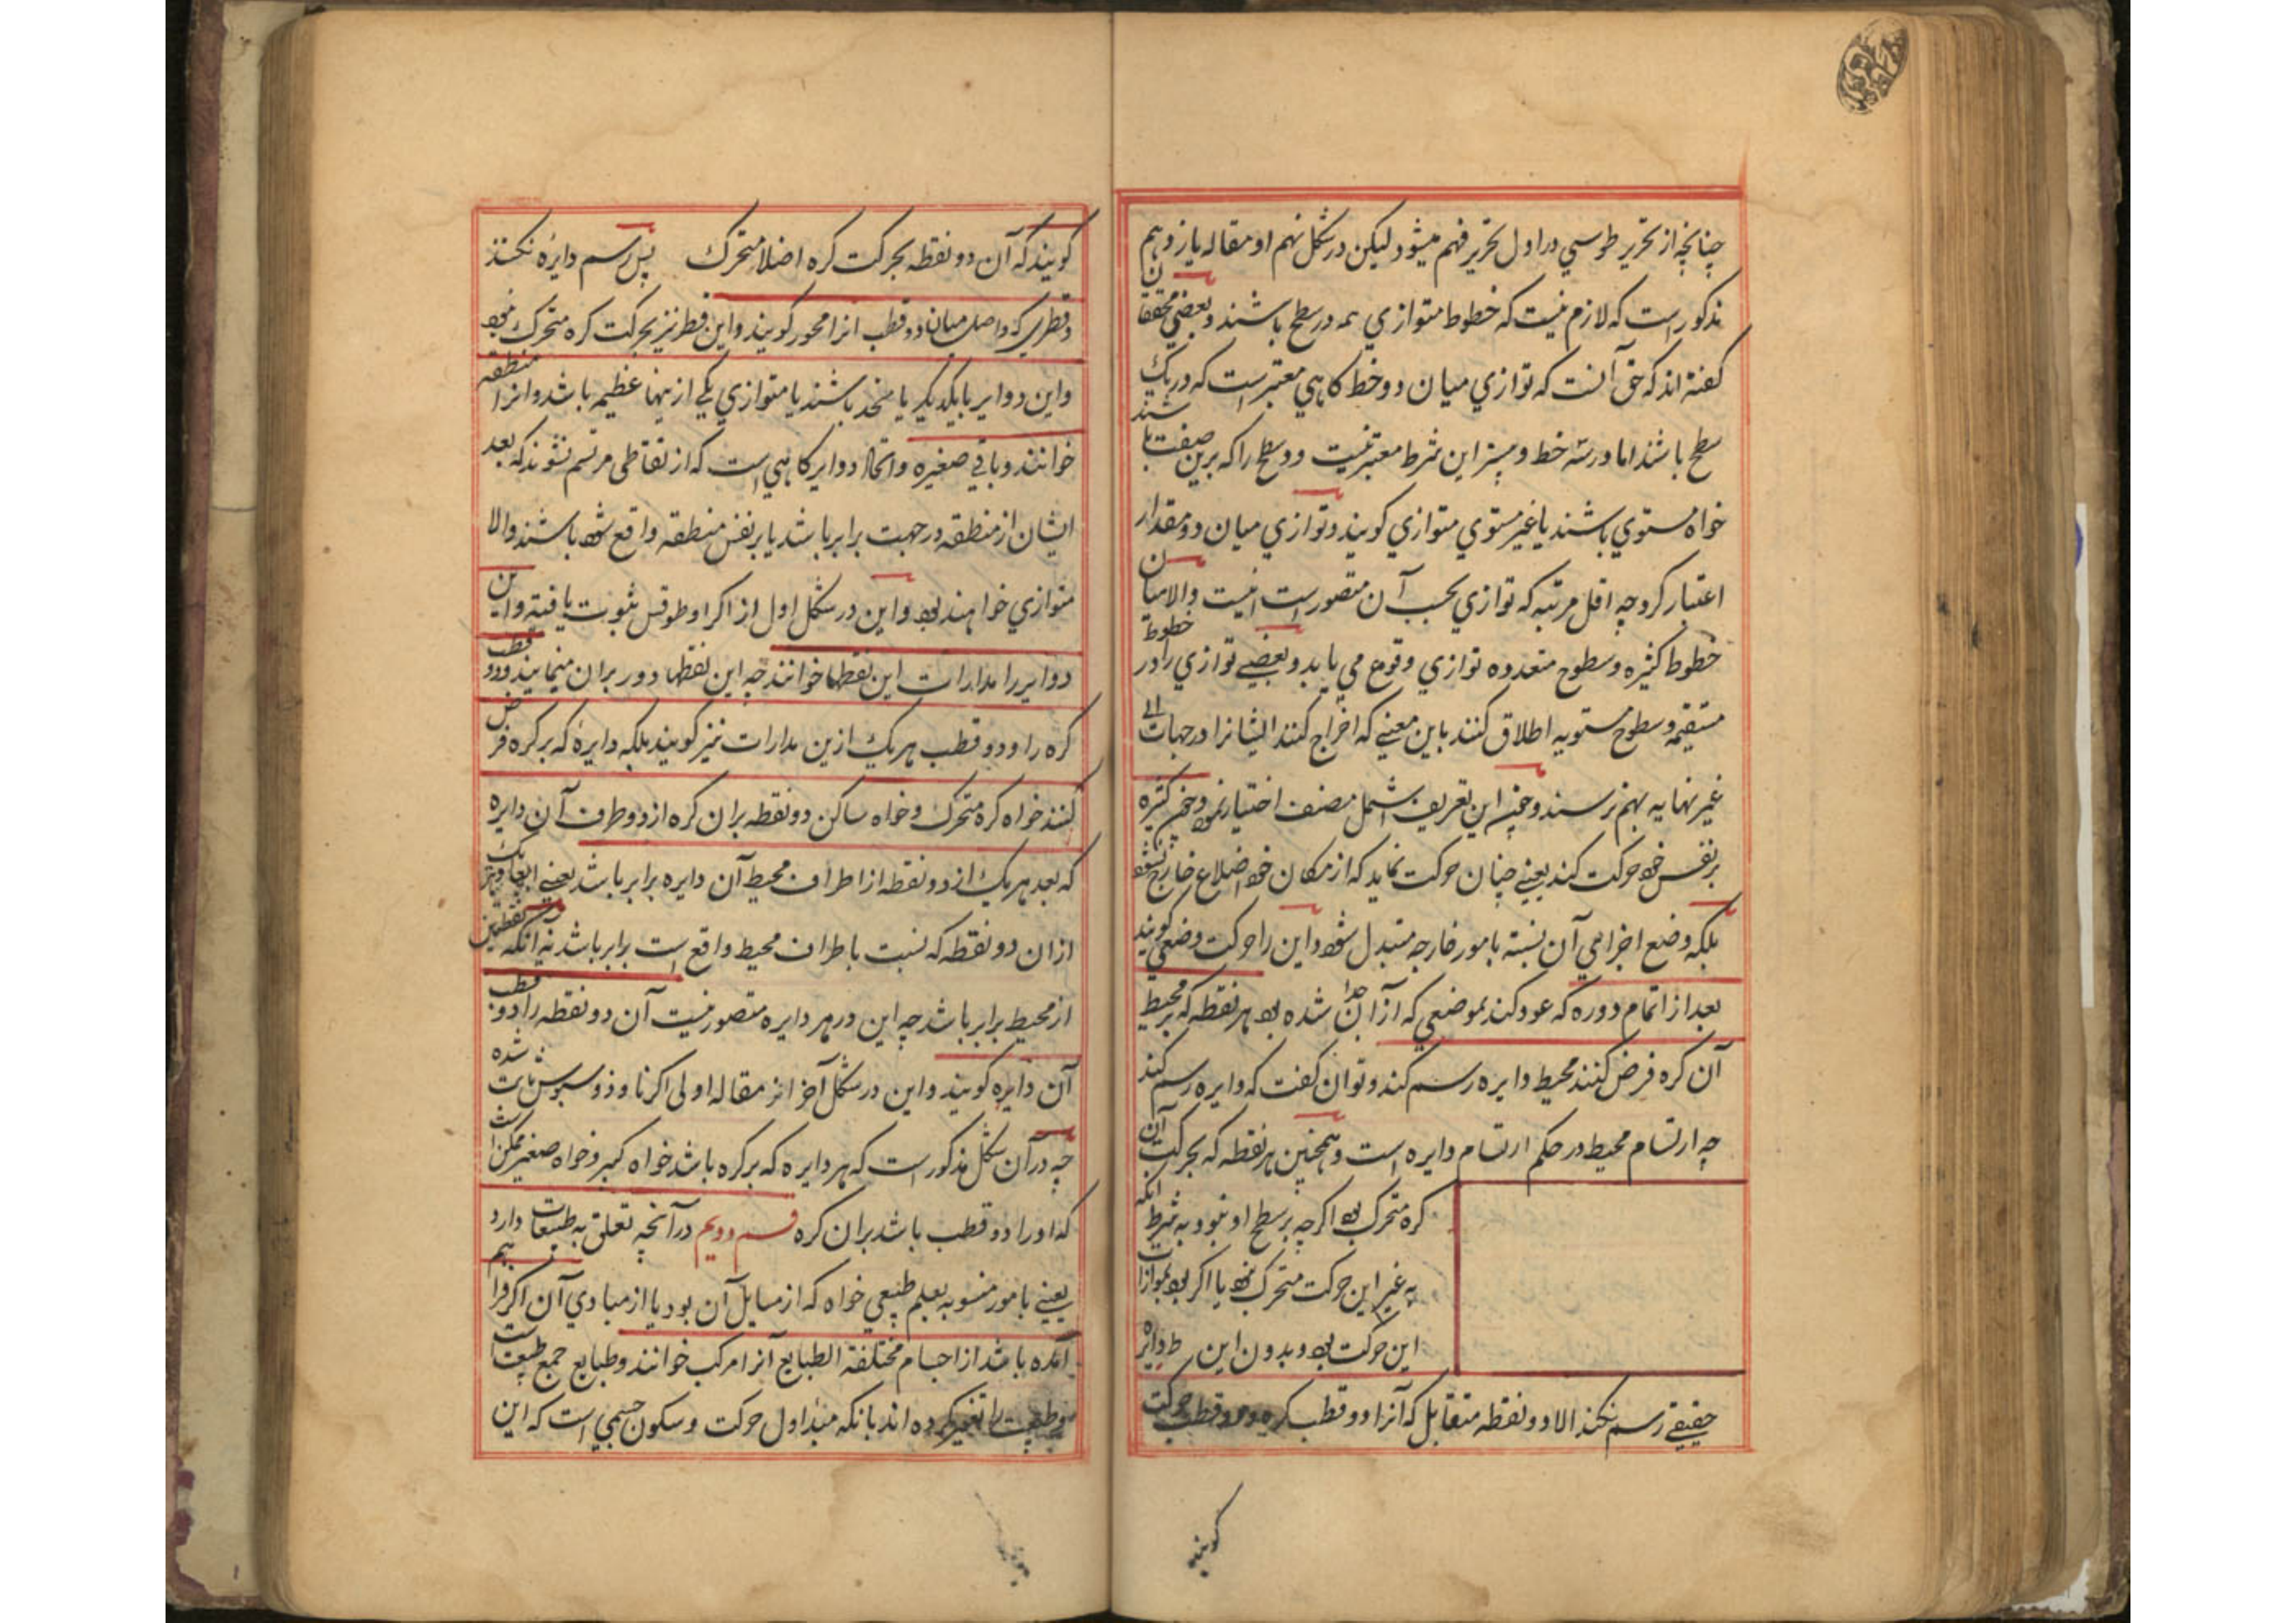 چنانچه از تحریر طوسي در اول تحریر فهم میشود لیکن در شکل نهم او مقاله یازدهم
مذکور است که لازم نیست که خطوط متوازي همه در سطح باشند و بعضي محققان
کفته اند که حق آنست که توازي میان دو خط کاهي معتبر است که در یک
سطح باشند اما در سه خط و بیشتر این شرط معتبر نیست و دو سطح را که برین صفت باشند
خواه مستوي باشند یا غیر مستوي متوازي کویند و توازي میان دو مقدار
اعتبار کرد چه اقل مرتبه که توازي بحسب آن متصور است اینست والا میان
خطوط کثیره و سطوح متعدده توازي وقوع مي یابد و بعضے توازي را در خطوط
مستقیمه و سطوح مستویه اطلاق کنند باین معنے که اخراج کنند ایشانرا در جهات الی
غیر نهایه بهم نرسند و این تعریف اشمل مصنف اختیار نمود چون کره
بر نفس خود حرکت کند یعنے چنان حرکت نماید که از مکان خود اصلا خارج نشود
بلکه وضع اجزامي آن نسبة بامور خارجه متبدل شود و این را حرکت وضعي کویند
بعد از اتمام دوره که عود کند بموضعي که از آن جدا شده بود هر نقطه که بر محیط
آن کره فرض کنند محیط دایره رسم کند و توان کفت که دایره رسم کند
چه ارتسام محیط در حکم ارتسام دایره است و همچنین هر نقطه که بحرکت آن
کره متحرک بود اکرچه بر سطح او نبود به شرط انکه
به غیر این حرکت متحرک نبود یا اکر بود بموازات
این حرکت بود و بدون این دایره
حقیقے رسم نکند الا دو نقطه متقابل که آنرا دو قطب کره و دو قطب حرکت
کویند
کویند که آن دو نقطه بحرکت کره اصلا متحرک پس رسم دایره نکنند
و قطري که واصل میان دو قطب انرا محور کویند و این قطر نیز بحرکت کره متحرک نبود
و این دوایر با یکدیکر یا متحد باشند یا متوازي یکے ازینها عظیمه باشد و انرا منطقه
خوانند و باقي صغیره و اتحاد دوایر کاهي است که از نقاطی مرتسم نشوند که بعد
ایشان از منطقه در جهت برابر باشد یا بر نفس منطقه واقع شده باشند والا
متوازي خواهند بود و این در شکل اول از اکر اوطوقس ثبوت یافته و این
دوایر را مدارات این نقطها خوانند چه این نقطها دور بران مینمایند و دو قطب
کره را دو قطب هر یک ازین مدارات نیز کویند بلکه دایره که بر کره فرض
کنند خواه کره متحرک و خواه ساکن دو نقطه بران کره از دو طرف آن دایره
که بعد هر یک از دو نقطه از اطراف محیط آن دایره برابر باشد یعنے ابعاد هر یک
ازان دو نقطه که نسبت باطراف محیط واقع است برابر باشد نه انکه نقطتین
از محیط برابر باشد چه این در هر دایره متصور نیست آن دو نقطه را دو قطب
آن دایره کویند و این در شکل آخر از مقاله اولی اکر ثاوذوسیوس ثابت شده
چه در آن شکل مذکور است که هر دایره که بر کره باشد خواه کبیر و خواه صغیر ممکن است
که او را دو قطب باشد بران کره قسم دویم در آنچه تعلق به طبیعات دارد
یعنے بامور منسوبه بعلم طبیعي خواه که از مسایل آن بود یا از مبادي آن اکر فراهم
آمده باشد از اجسام مختلفة الطبایع آنرا مرکب خوانند و طبایع جمع طبیعت است
و طبیعت را تفسیر کرده اند بانکه مبدٲ اول حرکت و سکون جسمي است که این